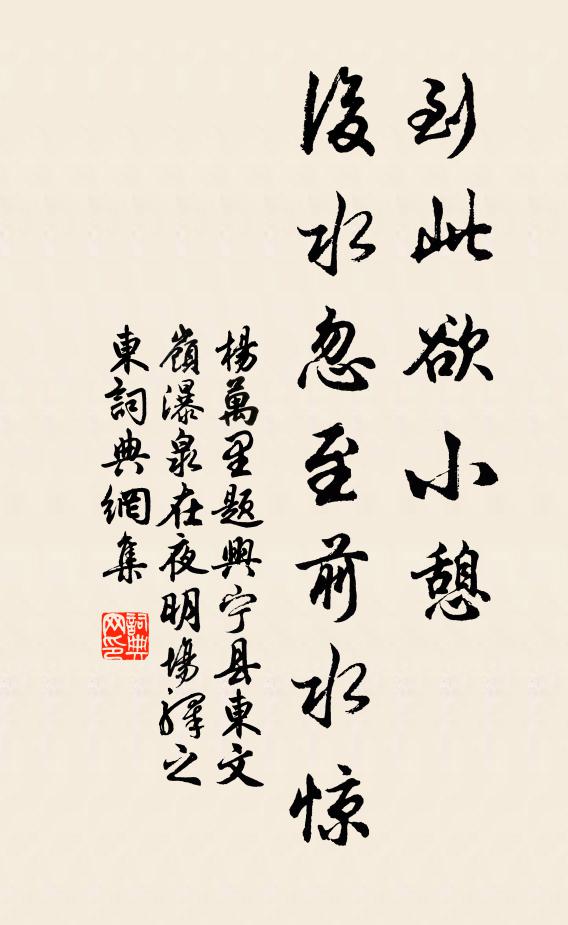 到此欲小憩
後水忽至前水惊
楊萬里題興宁县東文
嶺瀑泉在夜明場驛之
東詞典網集
詞典
网印